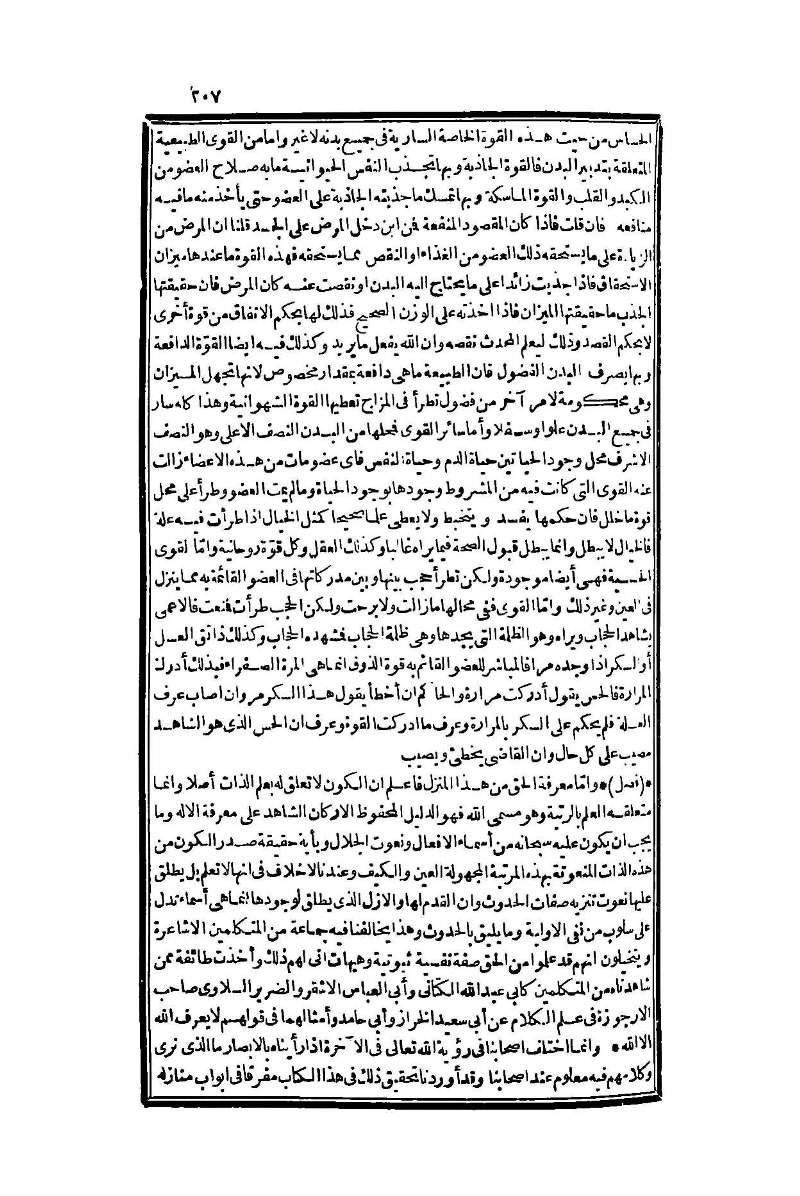 ٢٠٧
الحساس من حيث هذه القوة الخاصة السارية فى جميع بدنه لا غير وأما من القوى الطبيعية
المتعلقة بتدبير البدن فالقوة الجاذبة وبها تجذب النفس الحيوانية ما به صلاح العضو من
الكبد والقلب والقوة الماسكة وبها تمسك ما جذبته الجاذبة على العضو حتى يأخذ منه ما فيه
منافعه فان قلت فاذا كان المقصود المنفعة فمن اين دخل المرض على الجسد قلنا ان المرض من
الزيادة على ما يستحقه ذلك العضو من الغذاء أو النقص مما يستحقه فهذه القوة ما عندها ميزان
الاستحقاق فاذا جذبت زائدا على ما يحتاج اليه البدن أو نقصت عنه كان المرض فان حقيقتها
الجذب ما حقيقتها الميزان فاذا اخذته على الوزن الصحيح فذلك لها بحكم الاتفاق من قوة أخرى
لا بحكم القصد وذلك ليعلم المحدث نقصه وان الله يفعل ما يريد وكذلك فيه ايضا القوة الدافعة
وبها يصرف البدن الفضول فان الطبيعة ما هى دافعة بمقدار مخصوص لانها تجهل الميزان
وهى محكومة لامر آخر من فضول تطرأ فى المزاج تعطيها القوة الشهوانية وهذا كله سار
فى جميع البدن علوا وسفلا وأما سائر القوى فمحلها من البدن النصف الاعلى وهو النصف
الاشرف محل وجود الحياتين حياة الدم وحياة النفس فاى عضو مات من هذه الاعضاء زالت
عنه القوى التى كانت فيه من المشروط وجودها بوجود الحياة وما لم يمت العضو وطرأ على محل
قوة ما خلل فان حكمها يفسد ويتخبط ولا يعطى علما صحيحا كمثل الخيال اذا طرأت فيه علة
فالخيال لا يبطل وانما يبطل قبول الصحة فيما يراه غالبا وكذلك العقل وكل قوة روحانية وأما القوى
الحسية فهى أيضا موجودة ولكن تطرأ حجب بينها وبين مدركاتها فى العضو القائمة به مما ينزل
فى العين وغير ذلك وأما القوى ففى محالها ما زالت ولا برحت ولكن الحجب طرأت فمنعت فالاعمى
يشاهد الحجاب ويراه وهو الظلمة التى يجدها وهى ظلمة الحجاب فمشهده الحجاب وكذلك ذائق العسل
أو السكر اذا وجده مرا فالمباشر للعضو القائم به قوة الذوق انما هى المرة الصفراء فيذلك أدرك
المرارة فالحس يقول أدركت مرارة والحاكم ان أخطأ يقول هذا السكر مر وان اصاب عرف
العلة فلم يحكم على السكر بالمرارة وعرف ما ادركت القوة وعرف ان الحس الذى هو الشاهد
مصيب على كل حال وان القاضى يخطئ ويصيب
*(فصل)* وأما معرفة الحق من هذا المنزل فاعلم ان الكون لا تعلق له بعلم الذات أصلا وانما
متعلقه العلم بالرتبة وهو مسمى الله فهو الدليل المحفوظ الاركان الشاهد على معرفة الاله وما
يجب ان يكون عليه سبحانه من أسماء الافعال ونعوت الجلال وبأية حقيقة صدر الكون من
هذه الذات المنعوتة بهذه المرتبة المجهولة العين والكيف وعندنا لا خلاف فى انها لا تعلم بل يطلق
عليها نعوت تنزيه صفات الحدوث وان القدم لها والازل الذى يطلق لوجودها انما هى أسماء تدل
على سلوب من نفى الاولية وما يليق بالحدوث وهذا يخالفنا فيه جماعة من المتكلمين الاشاعرة
ويتخيلون انهم قد علموا من الحق صفة نفسية ثبوتية وهيهات انى لهم ذلك وأخذت طائفة ممن
شاهدناه من المتكلمين كابى عبد الله الكتانى وأبى العباس الاشقر والضرير السلاوى صاحب
الارجوزة فى علم الكلام عن أبى سعيد الخراز وأبى حامد وأمثالهما فى قولهم لا يعرف الله
الا الله * وانما اختلف اصحابنا فى رؤية الله تعالى فى الآخرة اذا رأيناه بالابصار ما الذى نرى
وكلامهم فيه معلوم عند اصحابنا وقد أوردنا تحقيق ذلك فى هذا الكتاب مفرقا فى ابواب منازله